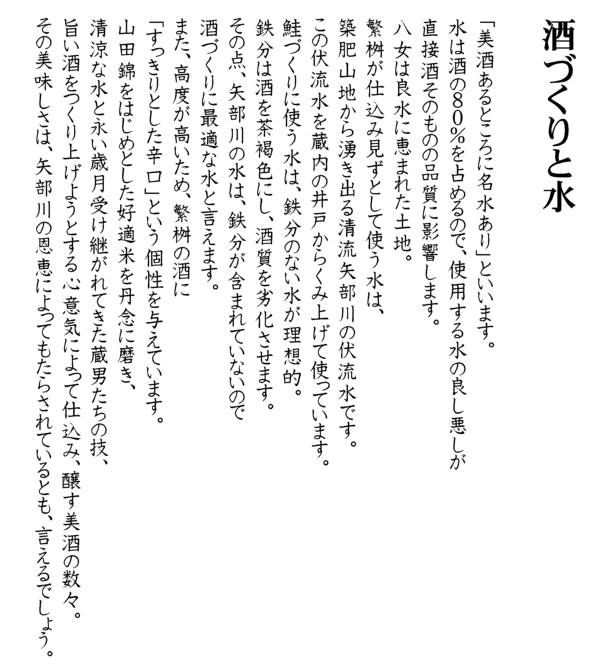 酒づくりと水
「美酒あるところに名水あり」といいます。
水は酒の80％を占めるので、使用する水の良し悪しが
直接酒そのものの品質に影響します。
八女は良水に恵まれた土地。
繁桝が仕込み見ずとして使う水は、
築肥山地から湧き出る清流矢部川の伏流水です。
この伏流水を蔵内の井戸からくみ上げて使っています。
鮭づくりに使う水は、鉄分のない水が理想的。
鉄分は酒を茶褐色にし、酒質を劣化させます。
その点、矢部川の水は、鉄分が含まれていないので
酒づくりに最適な水と言えます。
また、高度が高いため、繁桝の酒に
「すっきりとした辛口」という個性を与えています。
山田錦をはじめとした好適米を丹念に磨き、
清涼な水と永い歳月受け継がれてきた蔵男たちの技、
旨い酒をつくり上げようとする心意気によって仕込み、醸す美酒の数々。
その美味しさは、矢部川の恩恵によってもたらされているとも、言えるでしょう。